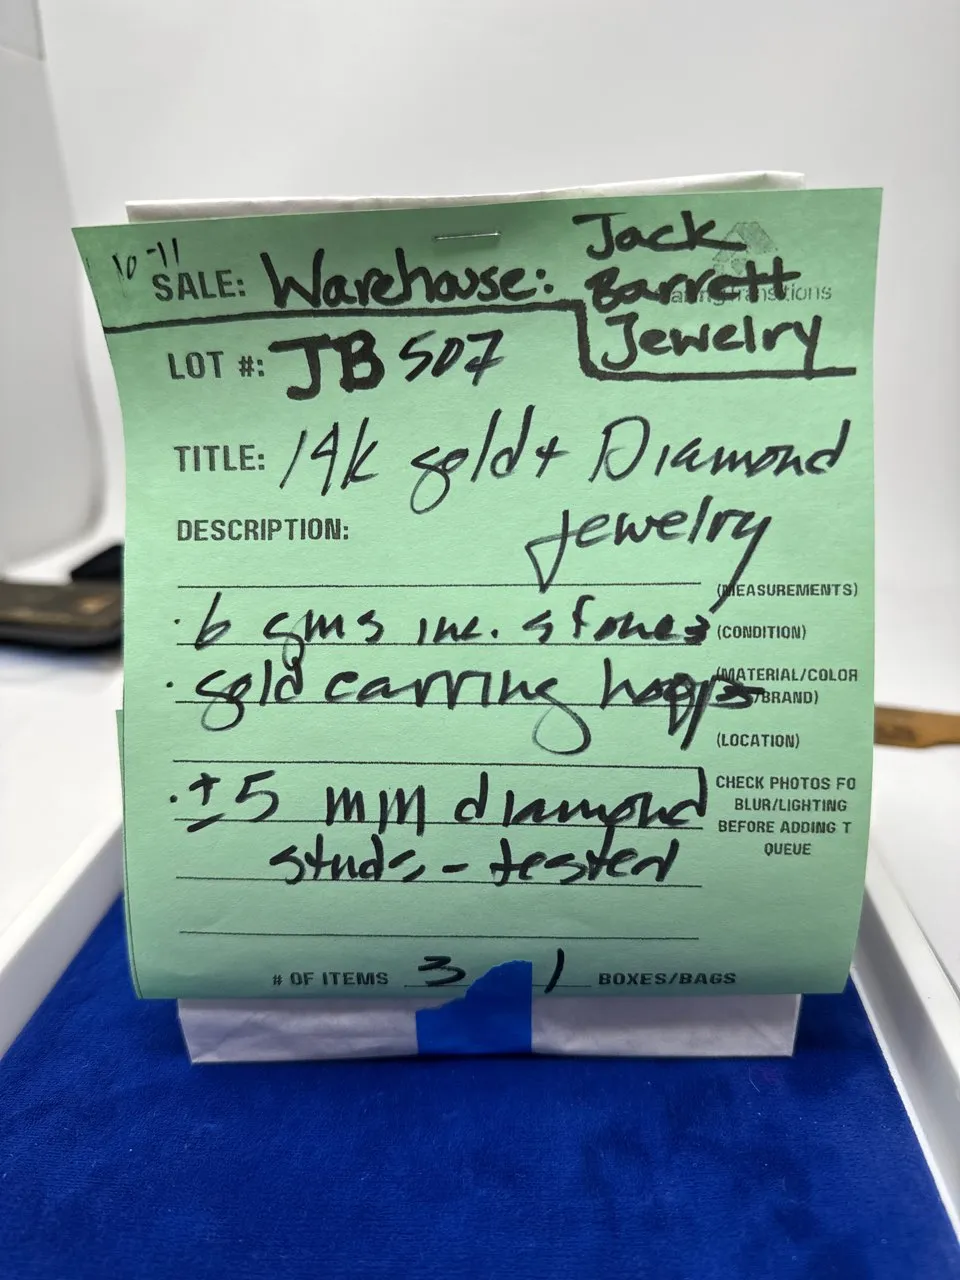 10-11
SALE: Warehouse: Jack
Barrett
Jewelry
LOT #: JB 507
TITLE: 14k gold + Diamond
jewelry
DESCRIPTION:
(MEASUREMENTS)
· 6 gms inc. stones (CONDITION)
· gold earring hoops (MATERIAL/COLOR
/BRAND)
(LOCATION)
· ± 5 mm diamond CHECK PHOTOS FO
BLUR/LIGHTING
studs - tested BEFORE ADDING T
QUEUE
# OF ITEMS 3 1 BOXES/BAGS